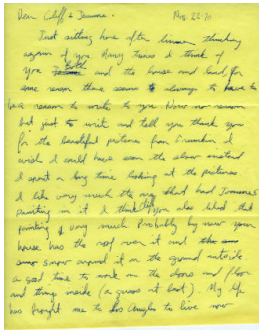 Dear Cliff & Joanne.
Just sitting here often times thinking
again of you Many times I think of
you both and the house and land, for
some reason there seems to always to have to
be a reason to write to you Now no reason
but just to write and tell you thank you
for the beautiful pictures from I
wish I could have seen the show instead
I spent a long time looking at the pictures
I like very much the big shed had Joanne's
painting in it I think you also liked that
painting very much Probably by now your
house has the roof over it and
snow around it on the ground outside
a good time to work on the doors and floor
and things inside (a guess at best). My life
has brought me to Los Angles to live now